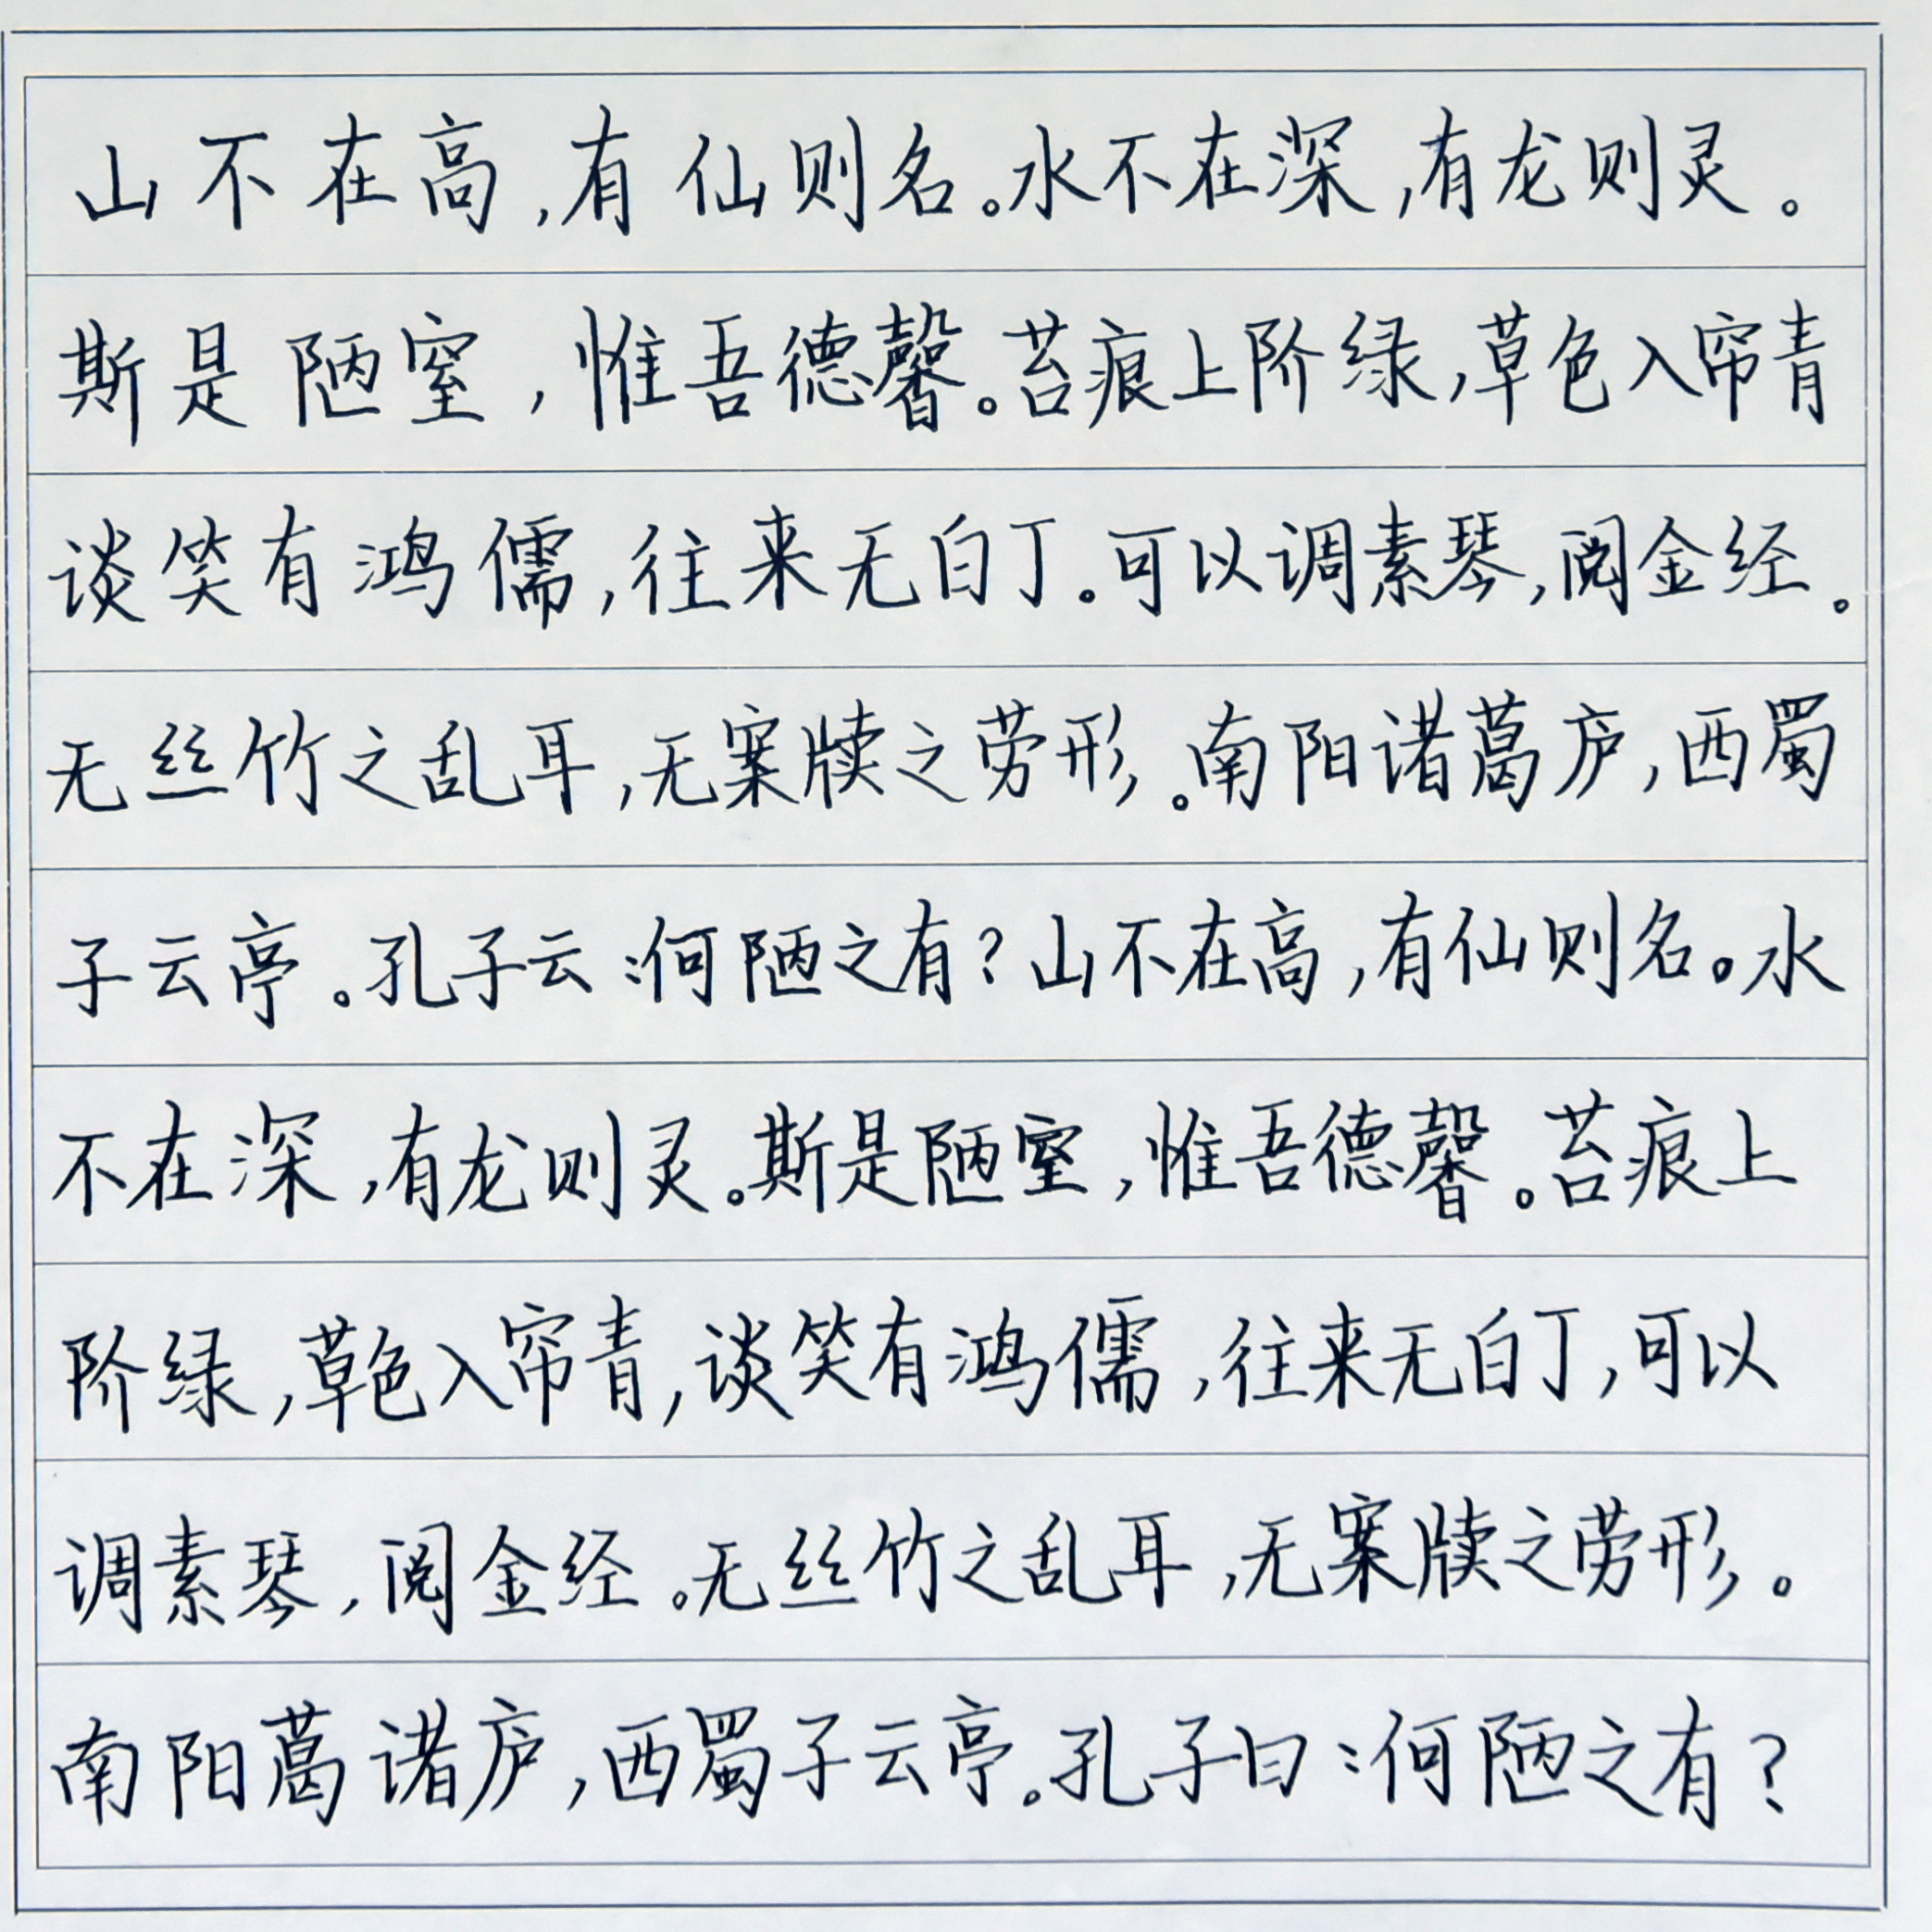 山不在高,有仙则名。水不在深,有龙则灵。
斯是陋室,惟吾德馨。苔痕上阶绿,草色入帘青
谈笑有鸿儒,往来无白丁。可以调素琴,阅金经。
无丝竹之乱耳,无案牍之劳形。南阳诸葛庐,西蜀
子云亭。孔子云:何陋之有?山不在高,有仙则名。水
不在深,有龙则灵。斯是陋室,惟吾德馨。苔痕上
阶绿,草色入帘青,谈笑有鸿儒,往来无白丁,可以
调素琴,阅金经。无丝竹之乱耳,无案牍之劳形。
南阳葛诸庐,西蜀子云亭。孔子曰:何陋之有?